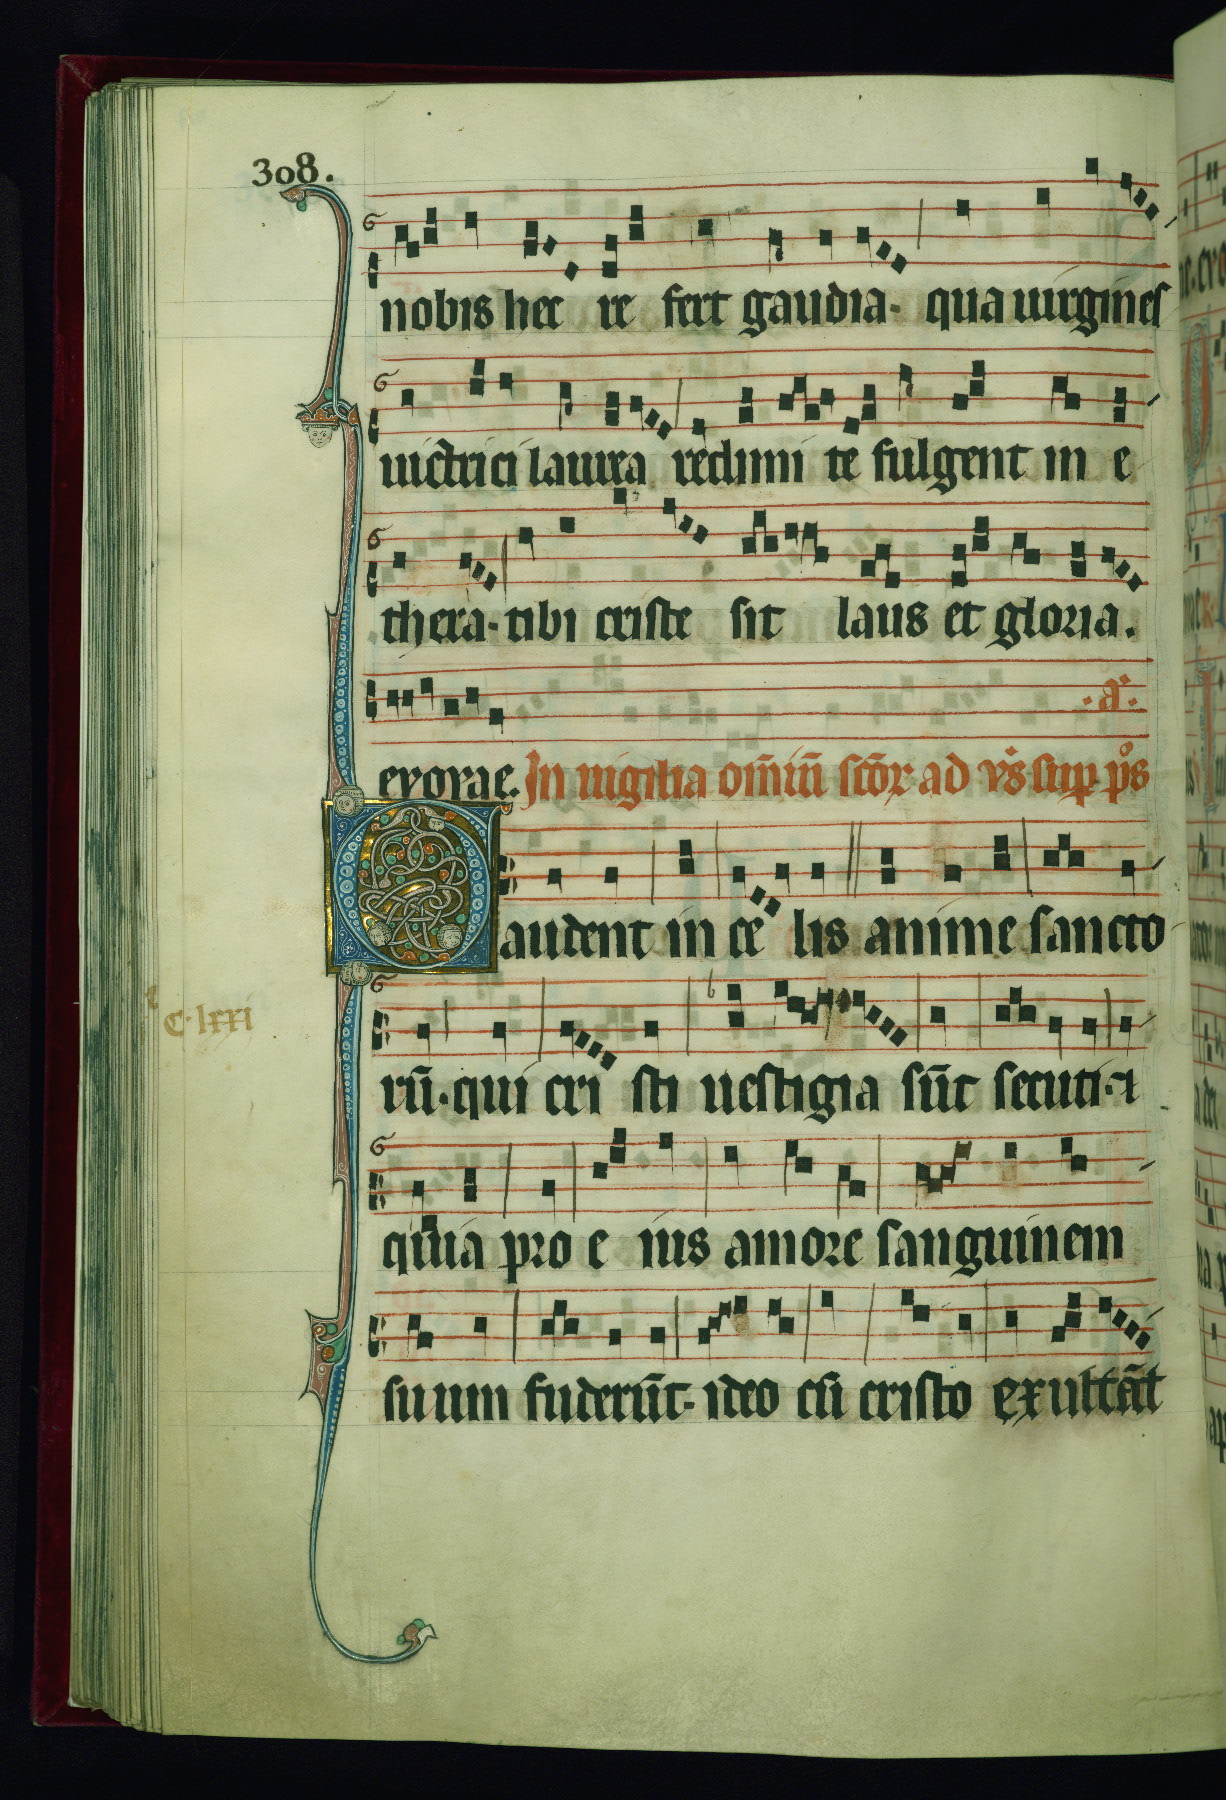 308.
nobis hec re fert gaudia. qua uirgines
uictrici laurea redimi te fulgent in e
thera. tibi criste sit laus et gloria.
.a.
evovae. In uigilia om̅iu̅ sc̅oꝝ ad vs̅ sup̱ ps̊
audent in ce lis anime sancto
c. lxxi
ru̅. qui cri sti uestigia su̅t secuti. et
quia pro e ius amore sanguinem
suum fuderu̅t. ideo cu̅ cristo exulta̅t